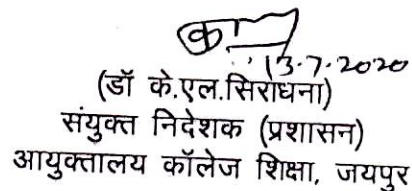 13.7.2020
(डॉ के.एल.सिराधना)
संयुक्त निदेशक (प्रशासन)
आयुक्तालय कॉलेज शिक्षा, जयपुर